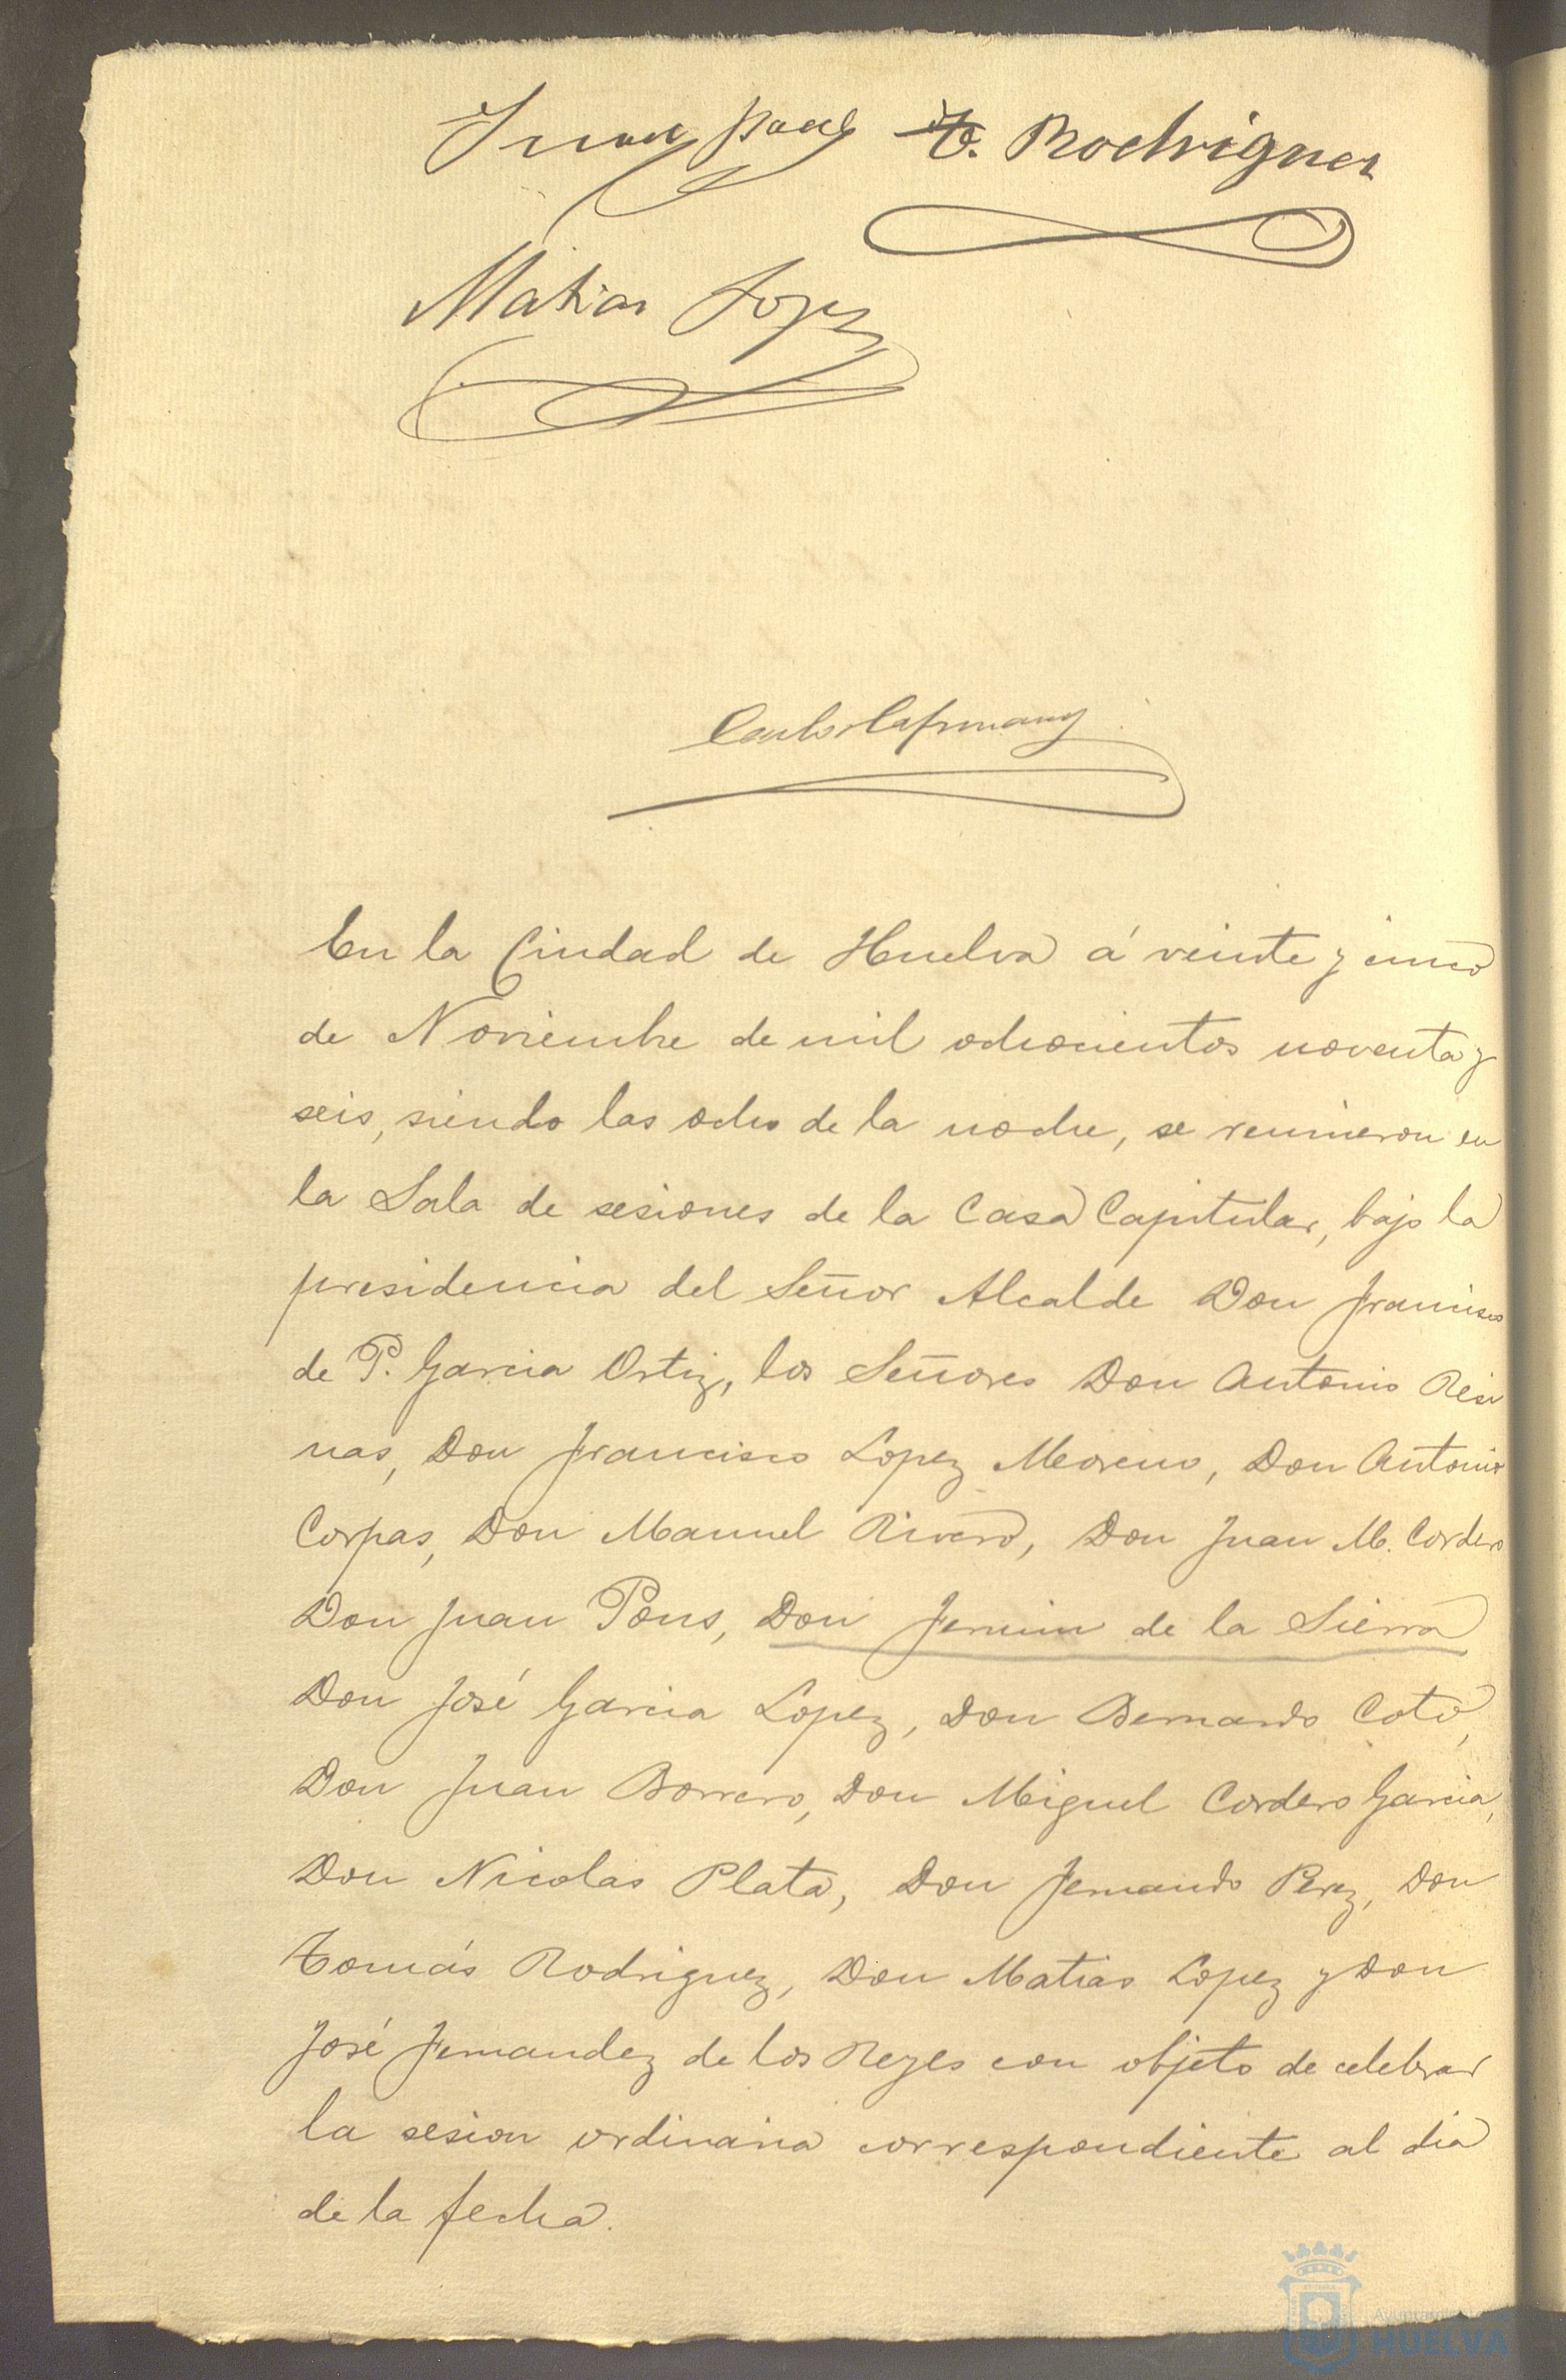 Juan Pons T. Rodriguez
Matias Lopez
Carlos Capmany
En la Ciudad de Huelva á veinte y cinco
de Noviembre de mil ochocientos noventa y
seis, siendo las ocho de la noche, se reunieron en
la Sala de sesiones de la Casa Capitular, bajo la
presidencia del Señor Alcalde Don Francisco
de P. Garcia Ortiz, los Señores Don Antonio Resi
nas, Don Francisco Lopez Moreno, Don Antonio
Corpas, Don Manuel Rivero, Don Juan M. Cordero
Don Juan Pons, Don Fermin de la Sierra
Don José Garcia Lopez, Don Bernardo Coto,
Don Juan Borrero, Don Miguel Cordero Garcia,
Don Nicolas Plata, Don Fernando Perez, Don
Tomás Rodriguez, Don Matias Lopez y Don
José Fernandez de los Reyes con objeto de celebrar
la sesion ordinaria correspondiente al dia
de la fecha.
HUELVA